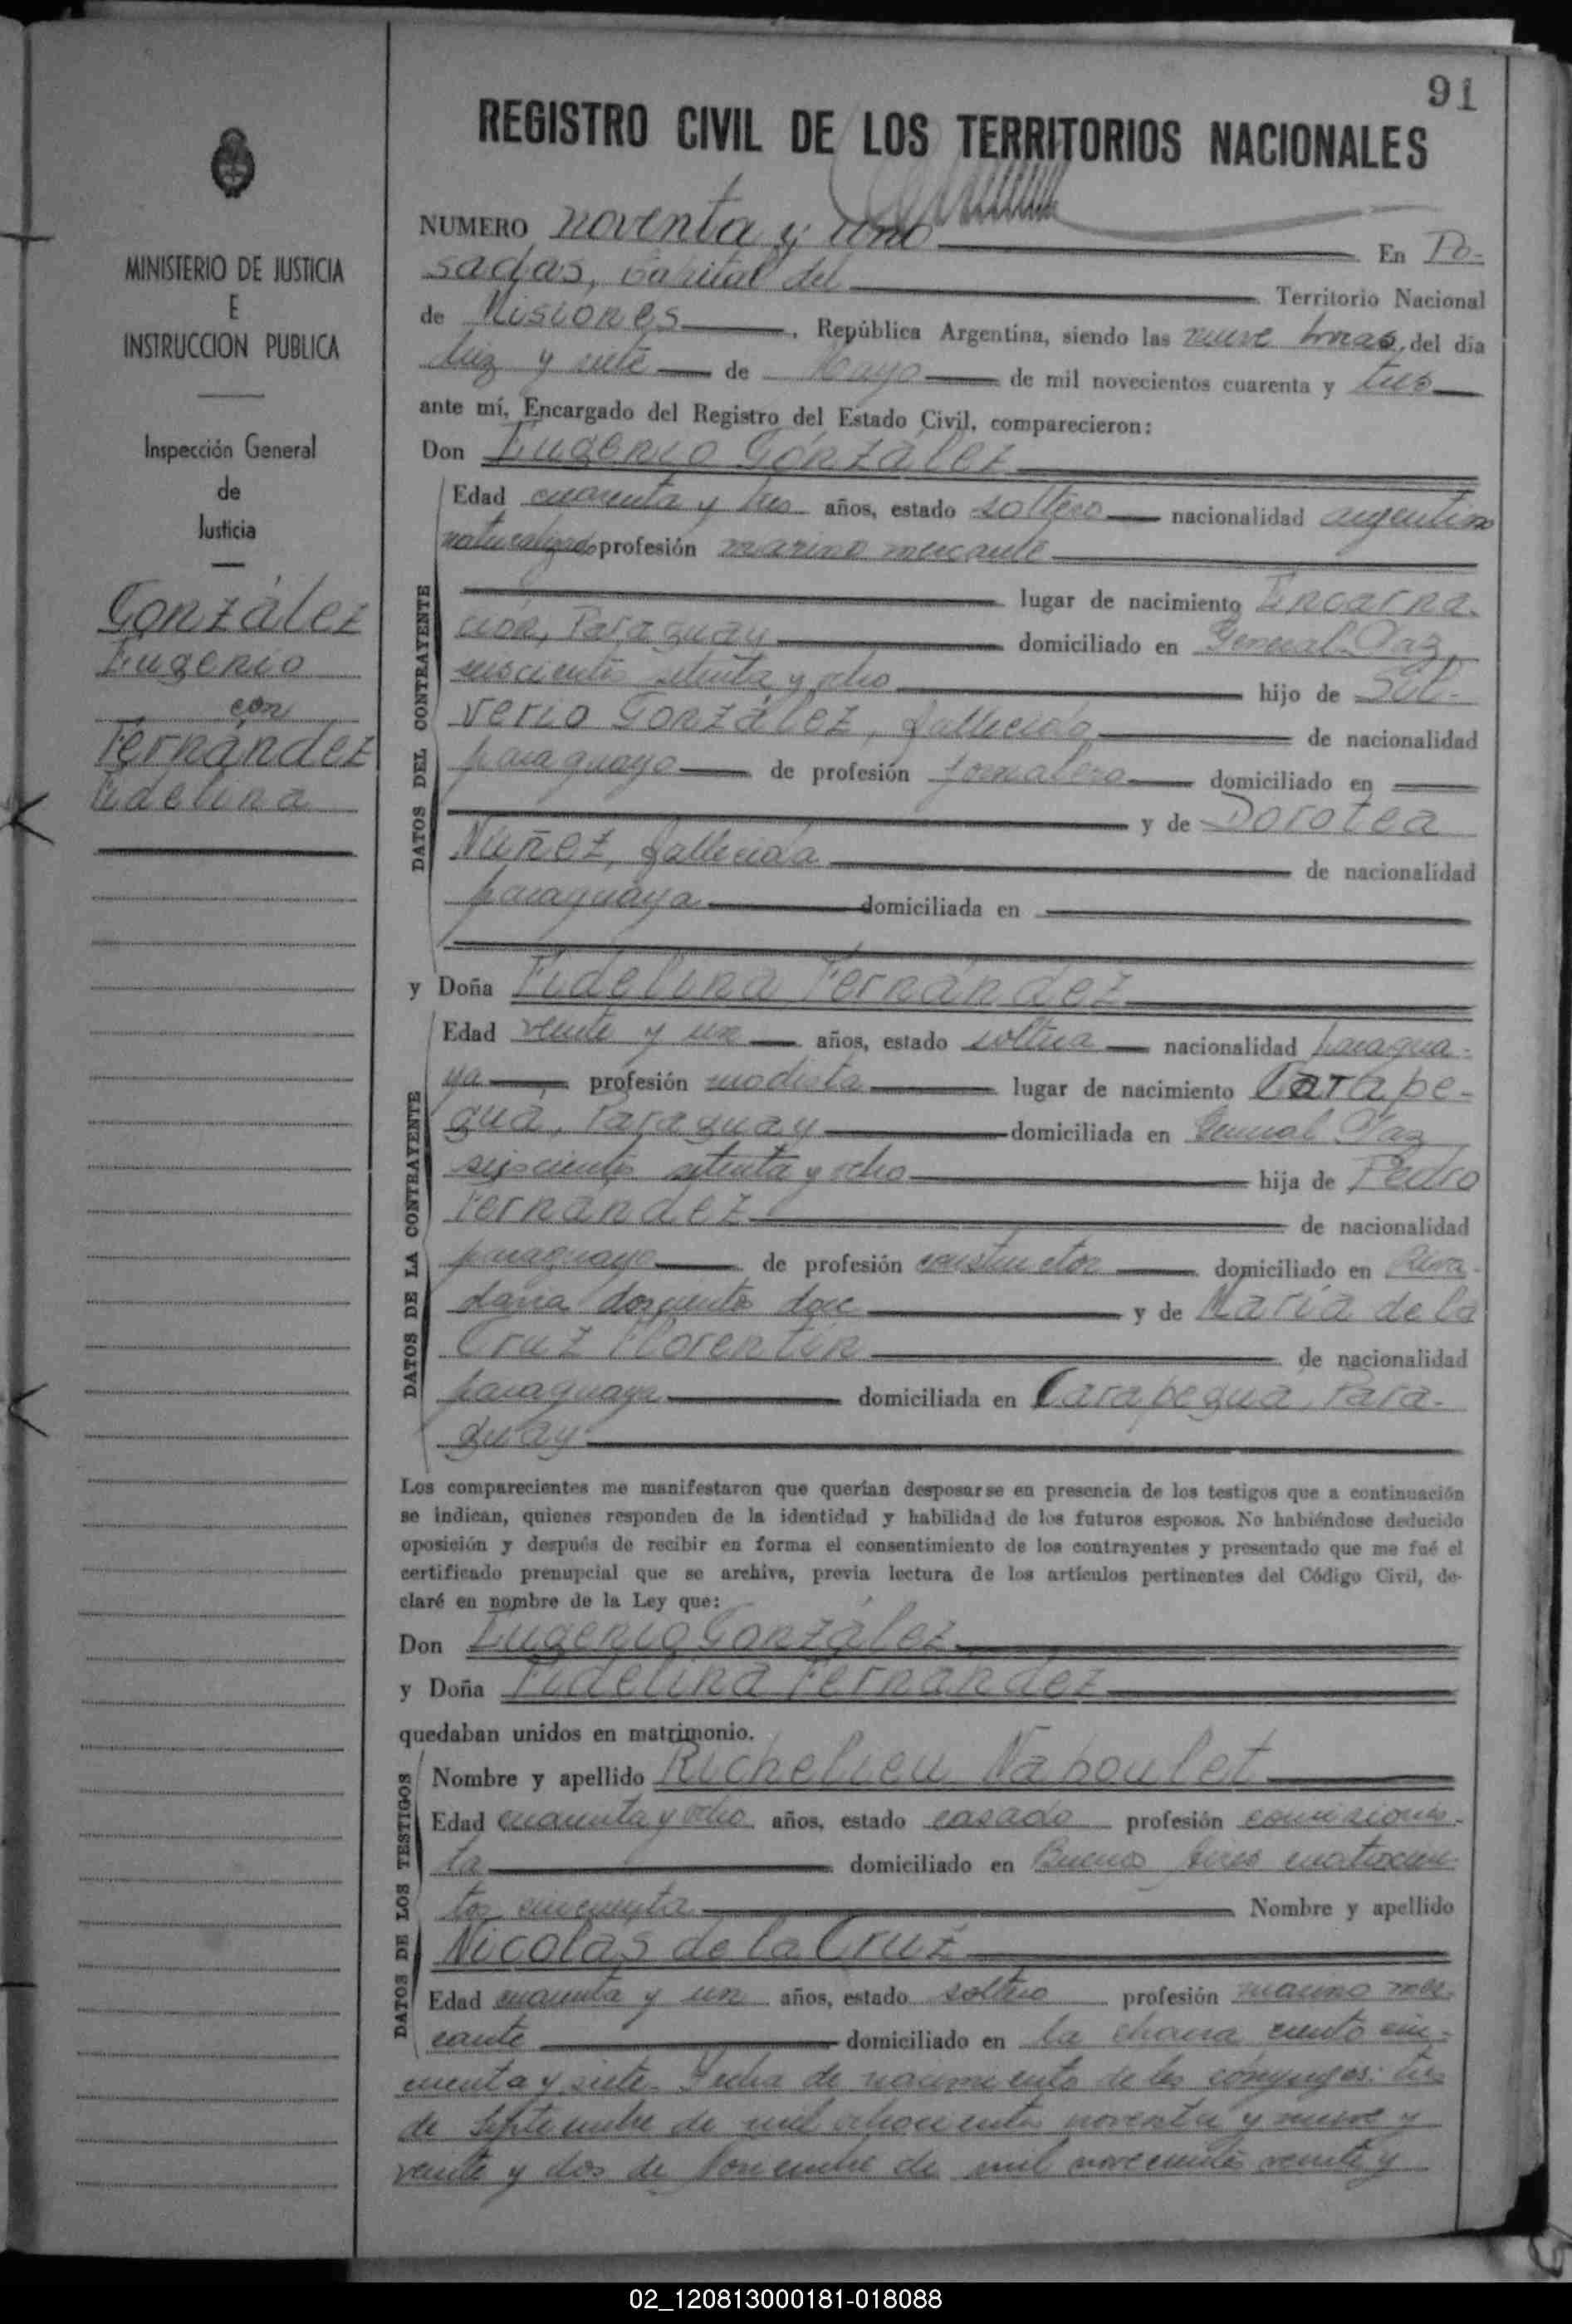 91
REGISTRO CIVIL DE LOS TERRITORIOS NACIONALES
MINISTERIO DE JUSTICIA
E
INSTRUCCION PUBLICA
Inspección General
de
Justicia
González
Eugenio
con
Fernández
Fidelina
NUMERO noventa y uno En Po-
sadas, Capital del Territorio Nacional
de Misiones, República Argentina, siendo las nueve horas, del día
diez y siete de Mayo de mil novecientos cuarenta y tres
ante mí, Encargado del Registro del Estado Civil, comparecieron:
Don Eugenio González
DATOS DEL CONTRAYENTE
Edad cuarenta y tres años, estado soltero nacionalidad argentino
naturalizado profesión marino mercante
lugar de nacimiento Encarna-
ción, Paraguay domiciliado en General Paz
seiscientos setenta y ocho hijo de Sil-
verio González, fallecido de nacionalidad
paraguayo de profesión jornalero domiciliado en
y de Dorotea
Núñez, fallecida de nacionalidad
paraguaya domiciliada en
y Doña Fidelina Fernández
DATOS DE LA CONTRAYENTE
Edad veinte y un años, estado soltera nacionalidad paragua-
ya profesión modista lugar de nacimiento Carape-
guá, Paraguay domiciliada en General Paz
seiscientos setenta y ocho hija de Pedro
Fernández de nacionalidad
paraguayo de profesión constructor domiciliado en Riva-
davia doscientos doce y de María de la
Cruz Florentín de nacionalidad
paraguaya domiciliada en Carapeguá, Para-
guay
Los comparecientes me manifestaron que querían desposarse en presencia de los testigos que a continuación
se indican, quienes responden de la identidad y habilidad de los futuros esposos. No habiéndose deducido
oposición y después de recibir en forma el consentimiento de los contrayentes y presentado que me fué el
certificado prenupcial que se archiva, previa lectura de los artículos pertinentes del Código Civil, de-
claré en nombre de la Ley que:
Don Eugenio González
y Doña Fidelina Fernández
quedaban unidos en matrimonio.
DATOS DE LOS TESTIGOS
Nombre y apellido Richelieu Naboulet
Edad cuarenta y ocho años, estado casado profesión comisionis-
ta domiciliado en Buenos Aires cuatrocien-
tos cincuenta Nombre y apellido
Nicolás de la Cruz
Edad cuarenta y un años, estado soltero profesión marino mer-
cante domiciliado en la chacra ciento cin-
cuenta y siete. Fecha de nacimiento de los cónyuges: tres
de Septiembre de mil ochocientos noventa y nueve y
veinte y dos de Noviembre de mil novecientos veinte y
02_120813000181-018088